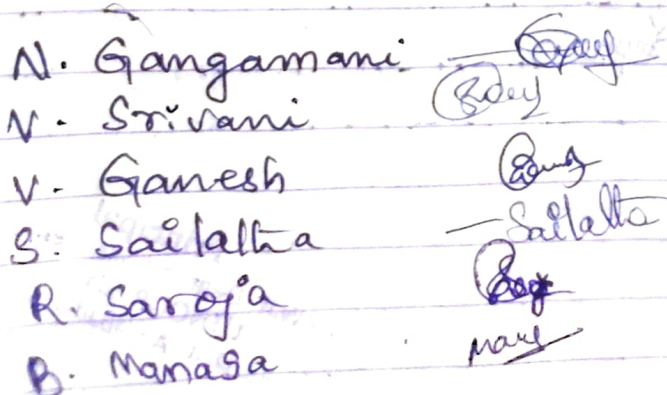 N. Gangamani
N. Srivani
V. Ganesh
S. Sailaltha - Sailaltha
R. Saroja
B. Manasa